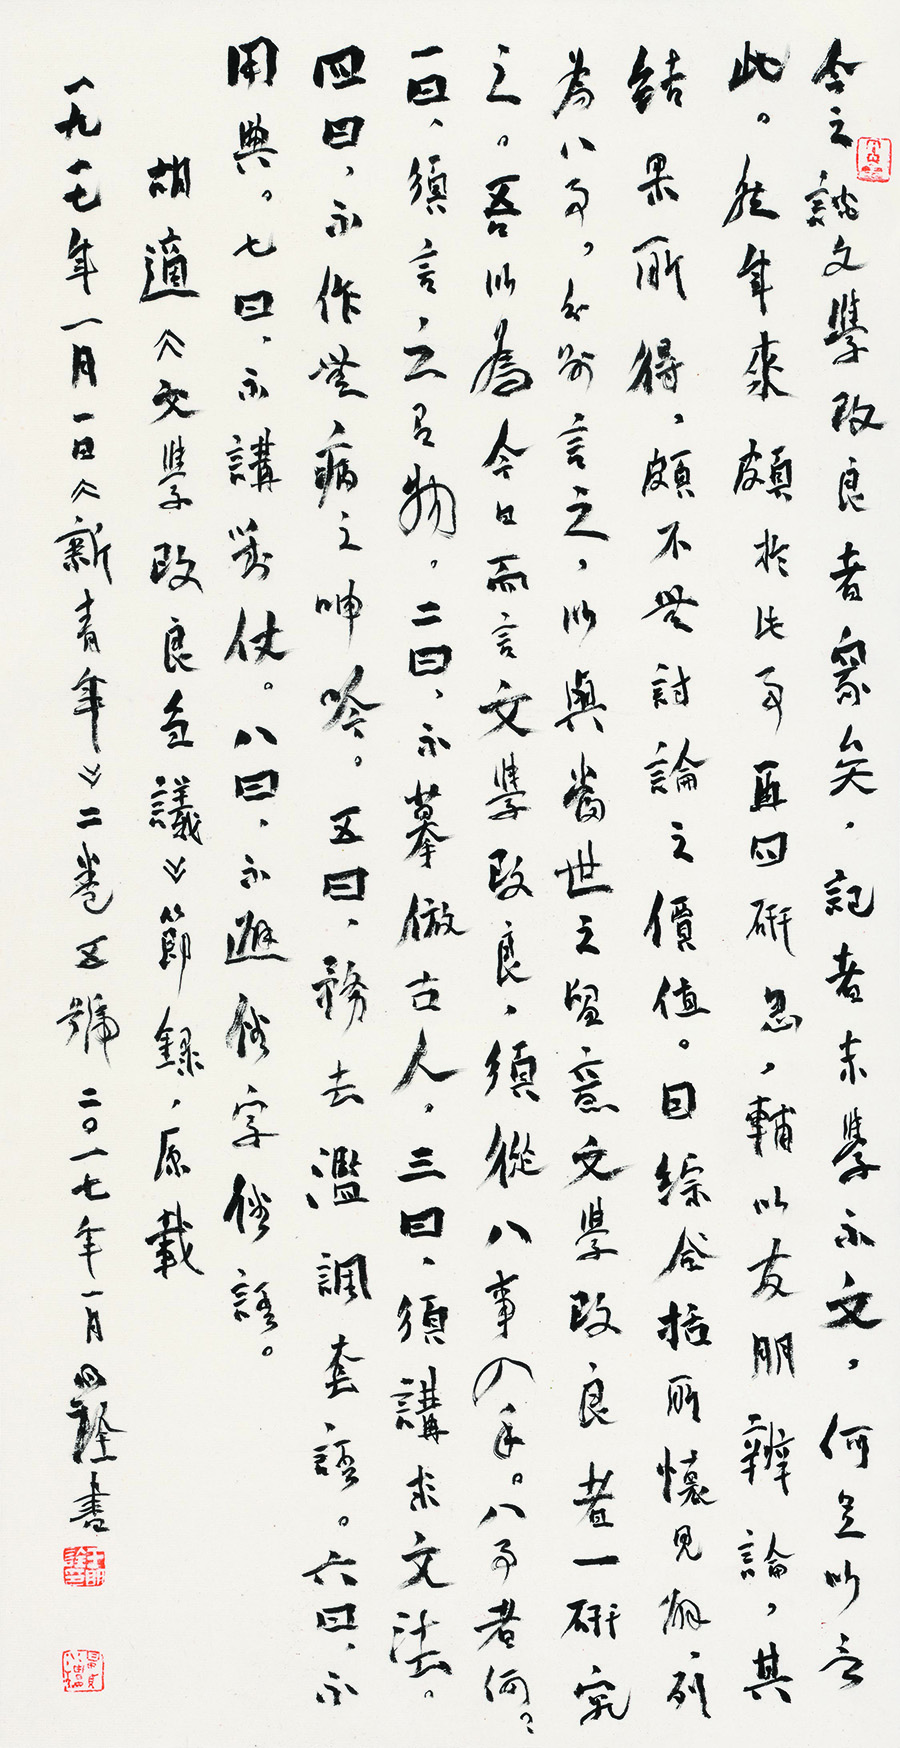 今之談文學改良者眾矣，記者未學不文，何足以言
此。然年來頗於此事再四研思，輔以友朋辨論，其
結果所得，頗不無討論之價值。因綜合括所懷見解，列
為八事，分別言之，以與當世之留意文學改良者一研究
之。吾以為今日而言文學改良，須從八事入手。八事者何？
一曰，須言之有物。二曰，不摹倣古人，三曰，須講求文法。
四曰，不作無病之呻吟。五曰，務去濫調套語。六曰，不
用典。七曰，不講對仗。八曰，不避俗字俗語。
胡適《文學改良芻議》節錄，原載
一九一七年一月一日《新青年》二卷五號 二〇一七年一月 書